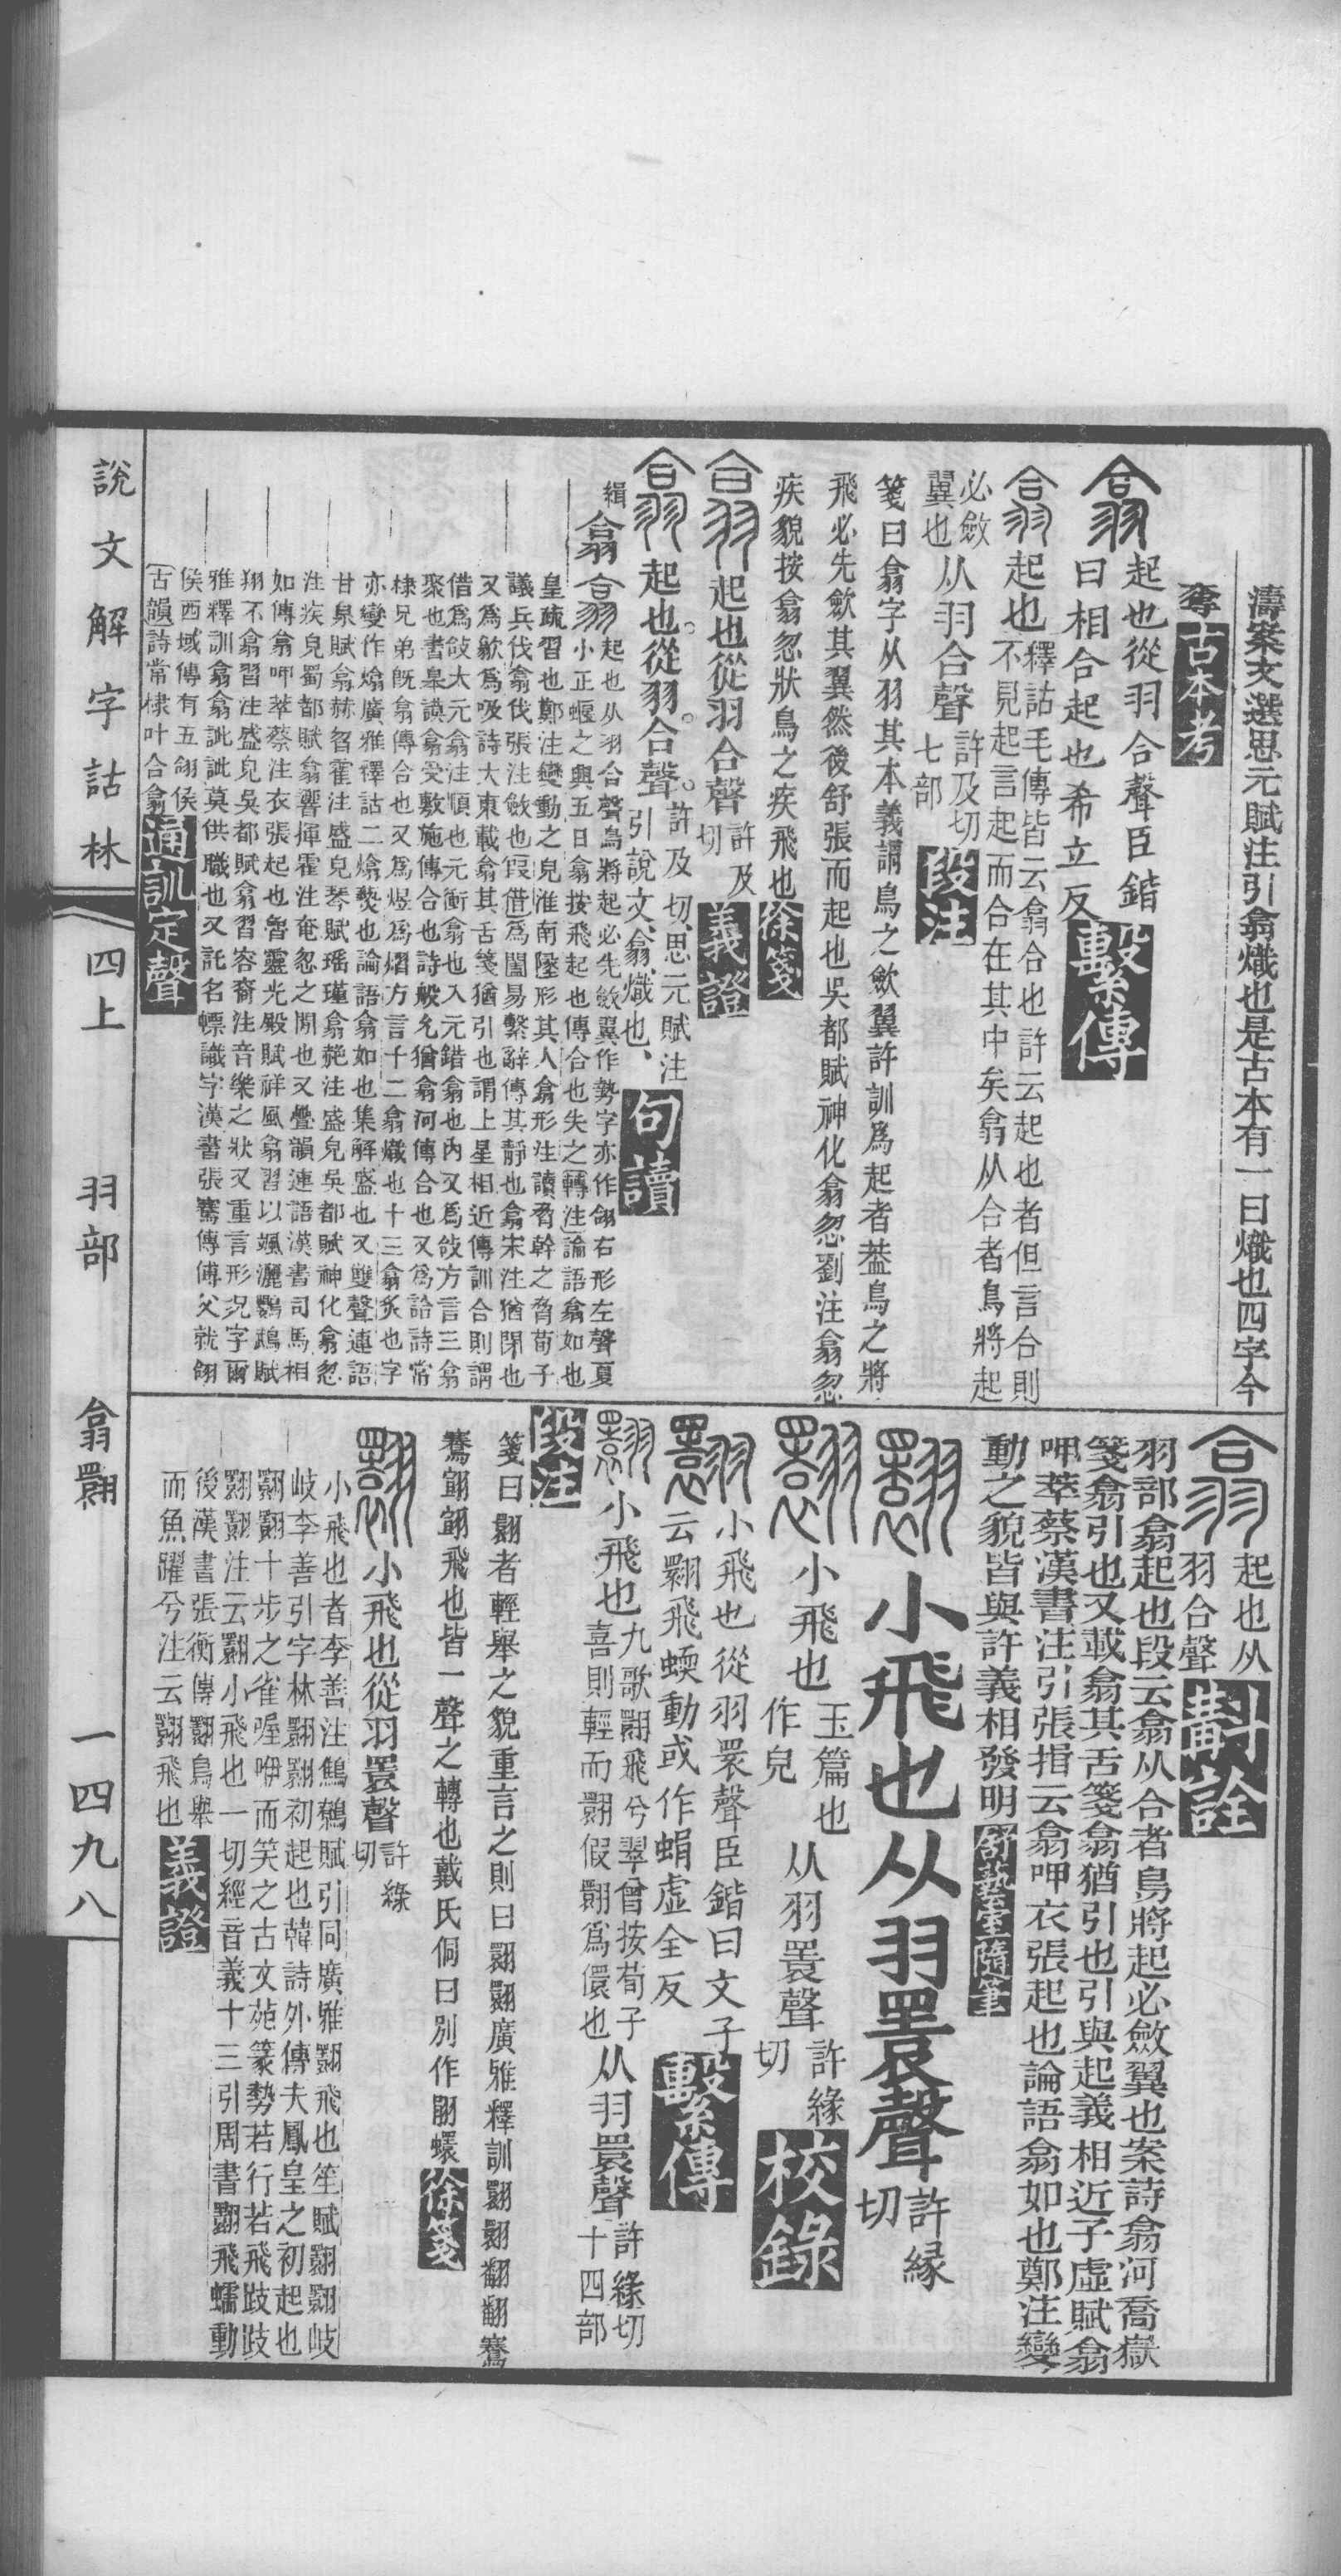 濤案文選思元賦注引翕熾也是古本有一曰熾也四字今
奪古本考
翕起也從羽合聲臣鍇
曰相合起也希立反繫傳
翕起也釋詁毛傳皆云翕合也許云起也者但言合則
不見起言起而合在其中矣翕从合者鳥將起
必斂
翼也从羽合聲許及切
七部段注
箋曰翕字从羽其本義謂鳥之歛翼許訓爲起者葢鳥之將
飛必先歛其翼然後舒張而起也吳都賦神化翕忽劉注翕忽
疾貌按翕忽狀鳥之疾飛也徐箋
翕起也從羽合聲許及
切義證
翕起也。從羽。合聲。許及切思元賦注
引說文、翕、熾也、句讀
緝翕翕起也从羽合聲鳥將起必先斂翼作勢字亦作翖右形左聲夏
小正蝘之興五日翕按飛起也傳合也失之轉注論語翕如也
皇疏習也鄭注變動之皃淮南墬形其人翕形注讀脅幹之脅荀子
議兵伐翕伐張注斂也假借爲闔易繫辭傳其靜也翕宋注猶閉也
又爲歙爲吸詩大東載翕其舌箋猶引也謂上星相近傳訓合則謂
借爲㪉大元翕注順也元衝翕也入元錯翕也內又爲㪉方言三翕
聚也書皋謨翕受敷施傳合也詩般允猶翕河傳合也又爲詥詩常
棣兄弟旣翕傳合也又爲煜爲熠方言十二翕熾也十三翕炙也字
亦變作熻廣雅釋詁二熻爇也論語翕如也集解盛也又雙聲連語
甘泉賦翕赫曶霍注盛皃琴賦瑤瑾翕赩注盛皃吳都賦神化翕忽
注疾皃蜀都賦翕響揮霍注奄忽之閒也又疊韻連語漢書司馬相
如傳翕呷萃蔡注衣張起也魯靈光殿賦祥風翕習以颯灑鸚鵡賦
翔不翕習注盛皃吳都賦翕習容裔注音樂之狀又重言形況字爾
雅釋訓翕翕訿訿莫供職也又託名幖識字漢書張騫傳傅父就翖
侯西域傳有五翖侯
古韻詩常棣叶合翕通訓定聲
翕起也从
羽合聲
斠詮
羽部翕起也段云翕从合者鳥將起必斂翼也案詩翕河喬嶽
箋翕引也又載翕其舌箋翕猶引也引與起義相近子虛賦翕
呷萃蔡漢書注引張揖云翕呷衣張起也論語翕如也鄭注變
動之貌皆與許義相發明舒埶室隨筆
翾小飛也从羽睘聲許緣
切
翾小飛也玉篇也
作皃从羽睘聲許緣
切校錄
翾小飛也從羽睘聲臣鍇曰文子
云翾飛蝡動或作蜎虛全反繫傳
翾小飛也九歌翾飛兮翠曾按荀子
喜則輕而翾假翾爲儇也从羽睘聲許緣切
十四部
段注
箋曰翾者輕舉之貌重言之則曰翾翾廣雅釋訓翾翾翻翻騫
騫翧翧飛也皆一聲之轉也戴氏侗曰別作䎘蠉徐箋
翾小飛也從羽睘聲許緣
切
小飛也者李善注鷦鷯賦引同廣雅翾飛也笙賦翾翾岐
岐李善引字林翾翾初起也韓詩外傳夫鳳皇之初起也
翾翾十步之雀喔咿而笑之古文苑篆勢若行若飛跂跂
翾翾注云翾小飛也一切經音義十三引周書翾飛蠕動
後漢書張衡傳翾鳥舉
而魚躍兮注云翾飛也義證
說文解字詁林
四上
羽部
翕翾
一四九八